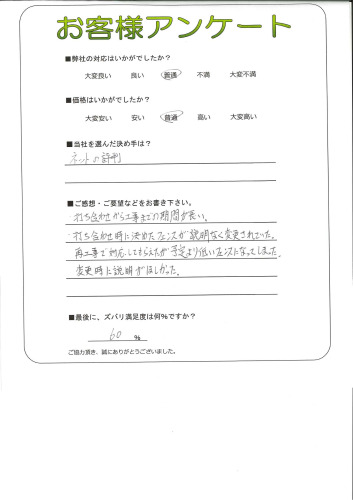 お客様アンケート
■弊社の対応はいかがでしたか？
大変良い 良い 普通 不満 大変不満
■価格はいかがでしたか？
大変安い 安い 普通 高い 大変高い
■当社を選んだ決め手は？
ネットの評判
■ご感想・ご要望などをお書き下さい。
・打ち合わせから工事までの期間が長い。
・打ち合わせ時に決めたフェンスが説明なく変更されていた。
再工事で対応してもらえたが予定より低いフェンスになってしまった。
変更時に説明がほしかった。
■最後に、ズバリ満足度は何％ですか？
60 ％
ご協力頂き、誠にありがとうございました。